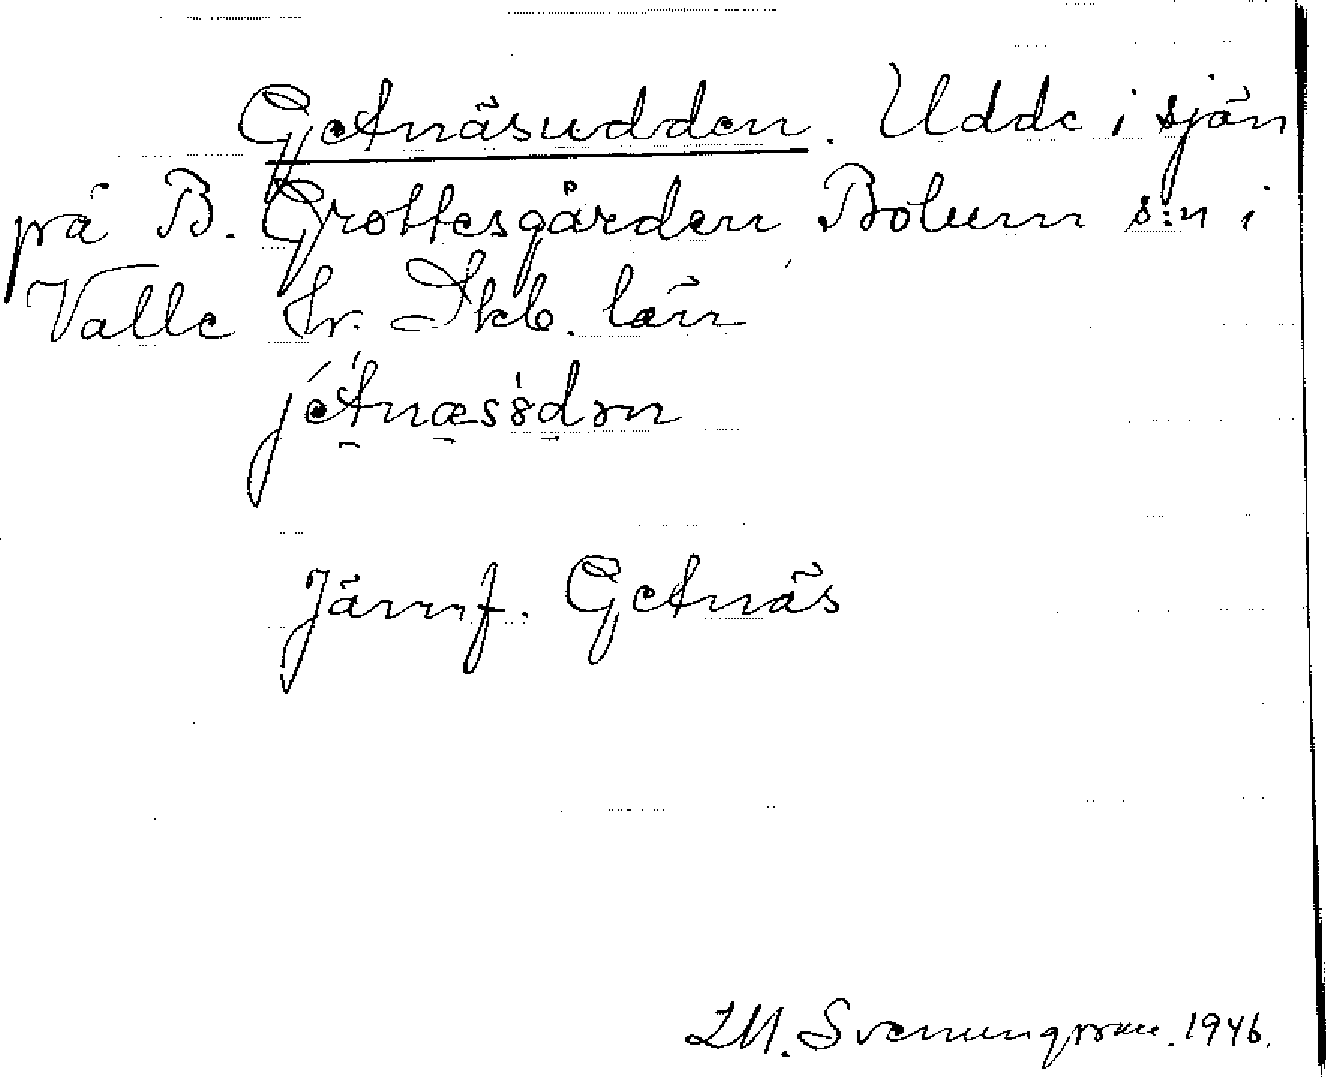 Getnäsudden. Udde i sjön
på B. Grottesgården Bolum s:n i
Valle hr. Skb. län
Jämf. Getnäs
Svenungsson. 1946.